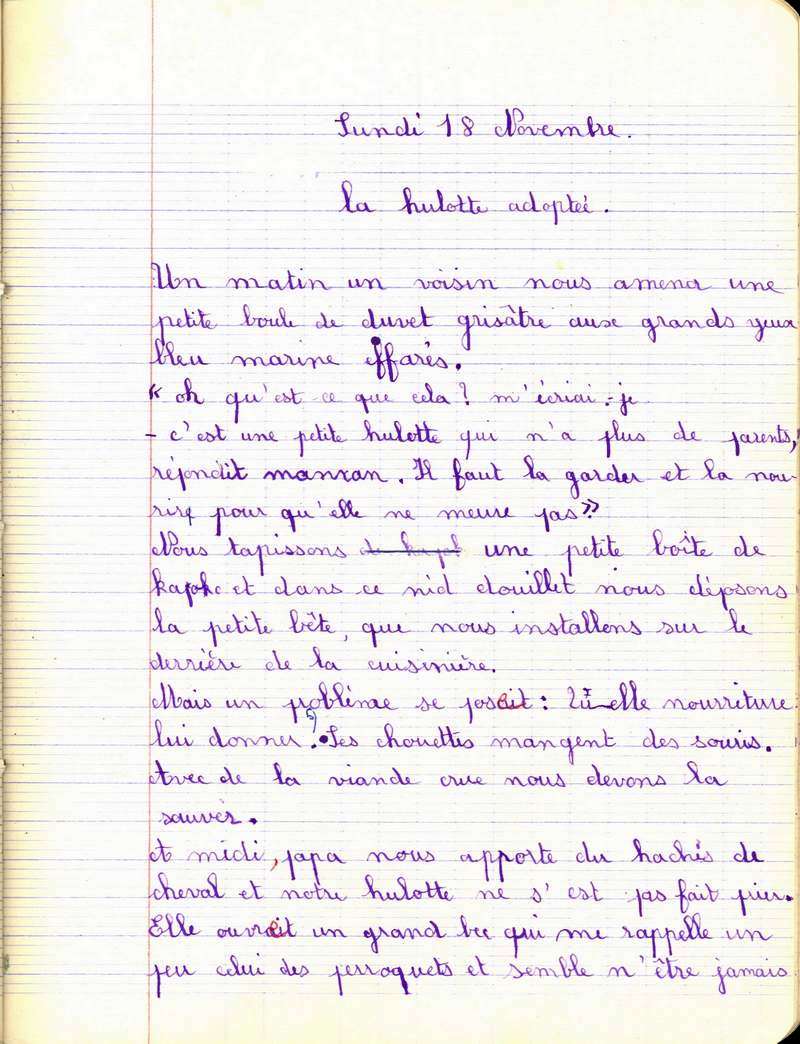 Lundi 18 Novembre.
la hulotte adoptée.
Un matin un voisin nous amena une
petite boule de duvet grisâtre aux grands yeux
bleu marine effarés.
« oh qu'est-ce que cela ? m'écriai-je
- c'est une petite hulotte qui n'a plus de parents,
répondit maman. Il faut la garder et la nou-
rire pour qu'elle ne meure pas »
Nous tapissons une petite boîte de
et dans ce nid douillet nous déposons
la petite bête, que nous installons sur le
derrière de la cuisinière.
Mais un problème se posait : Quelle nourriture
lui donner ? Les chouettes mangent des souris.
Avec de la viande crue nous devons la
sauver.
A midi, papa nous apporte du hachis de
cheval et notre hulotte ne s'est pas fait prier.
Elle ouvrait un grand bec qui me rappelle un
peu celui des perroquets et semble n'être jamais